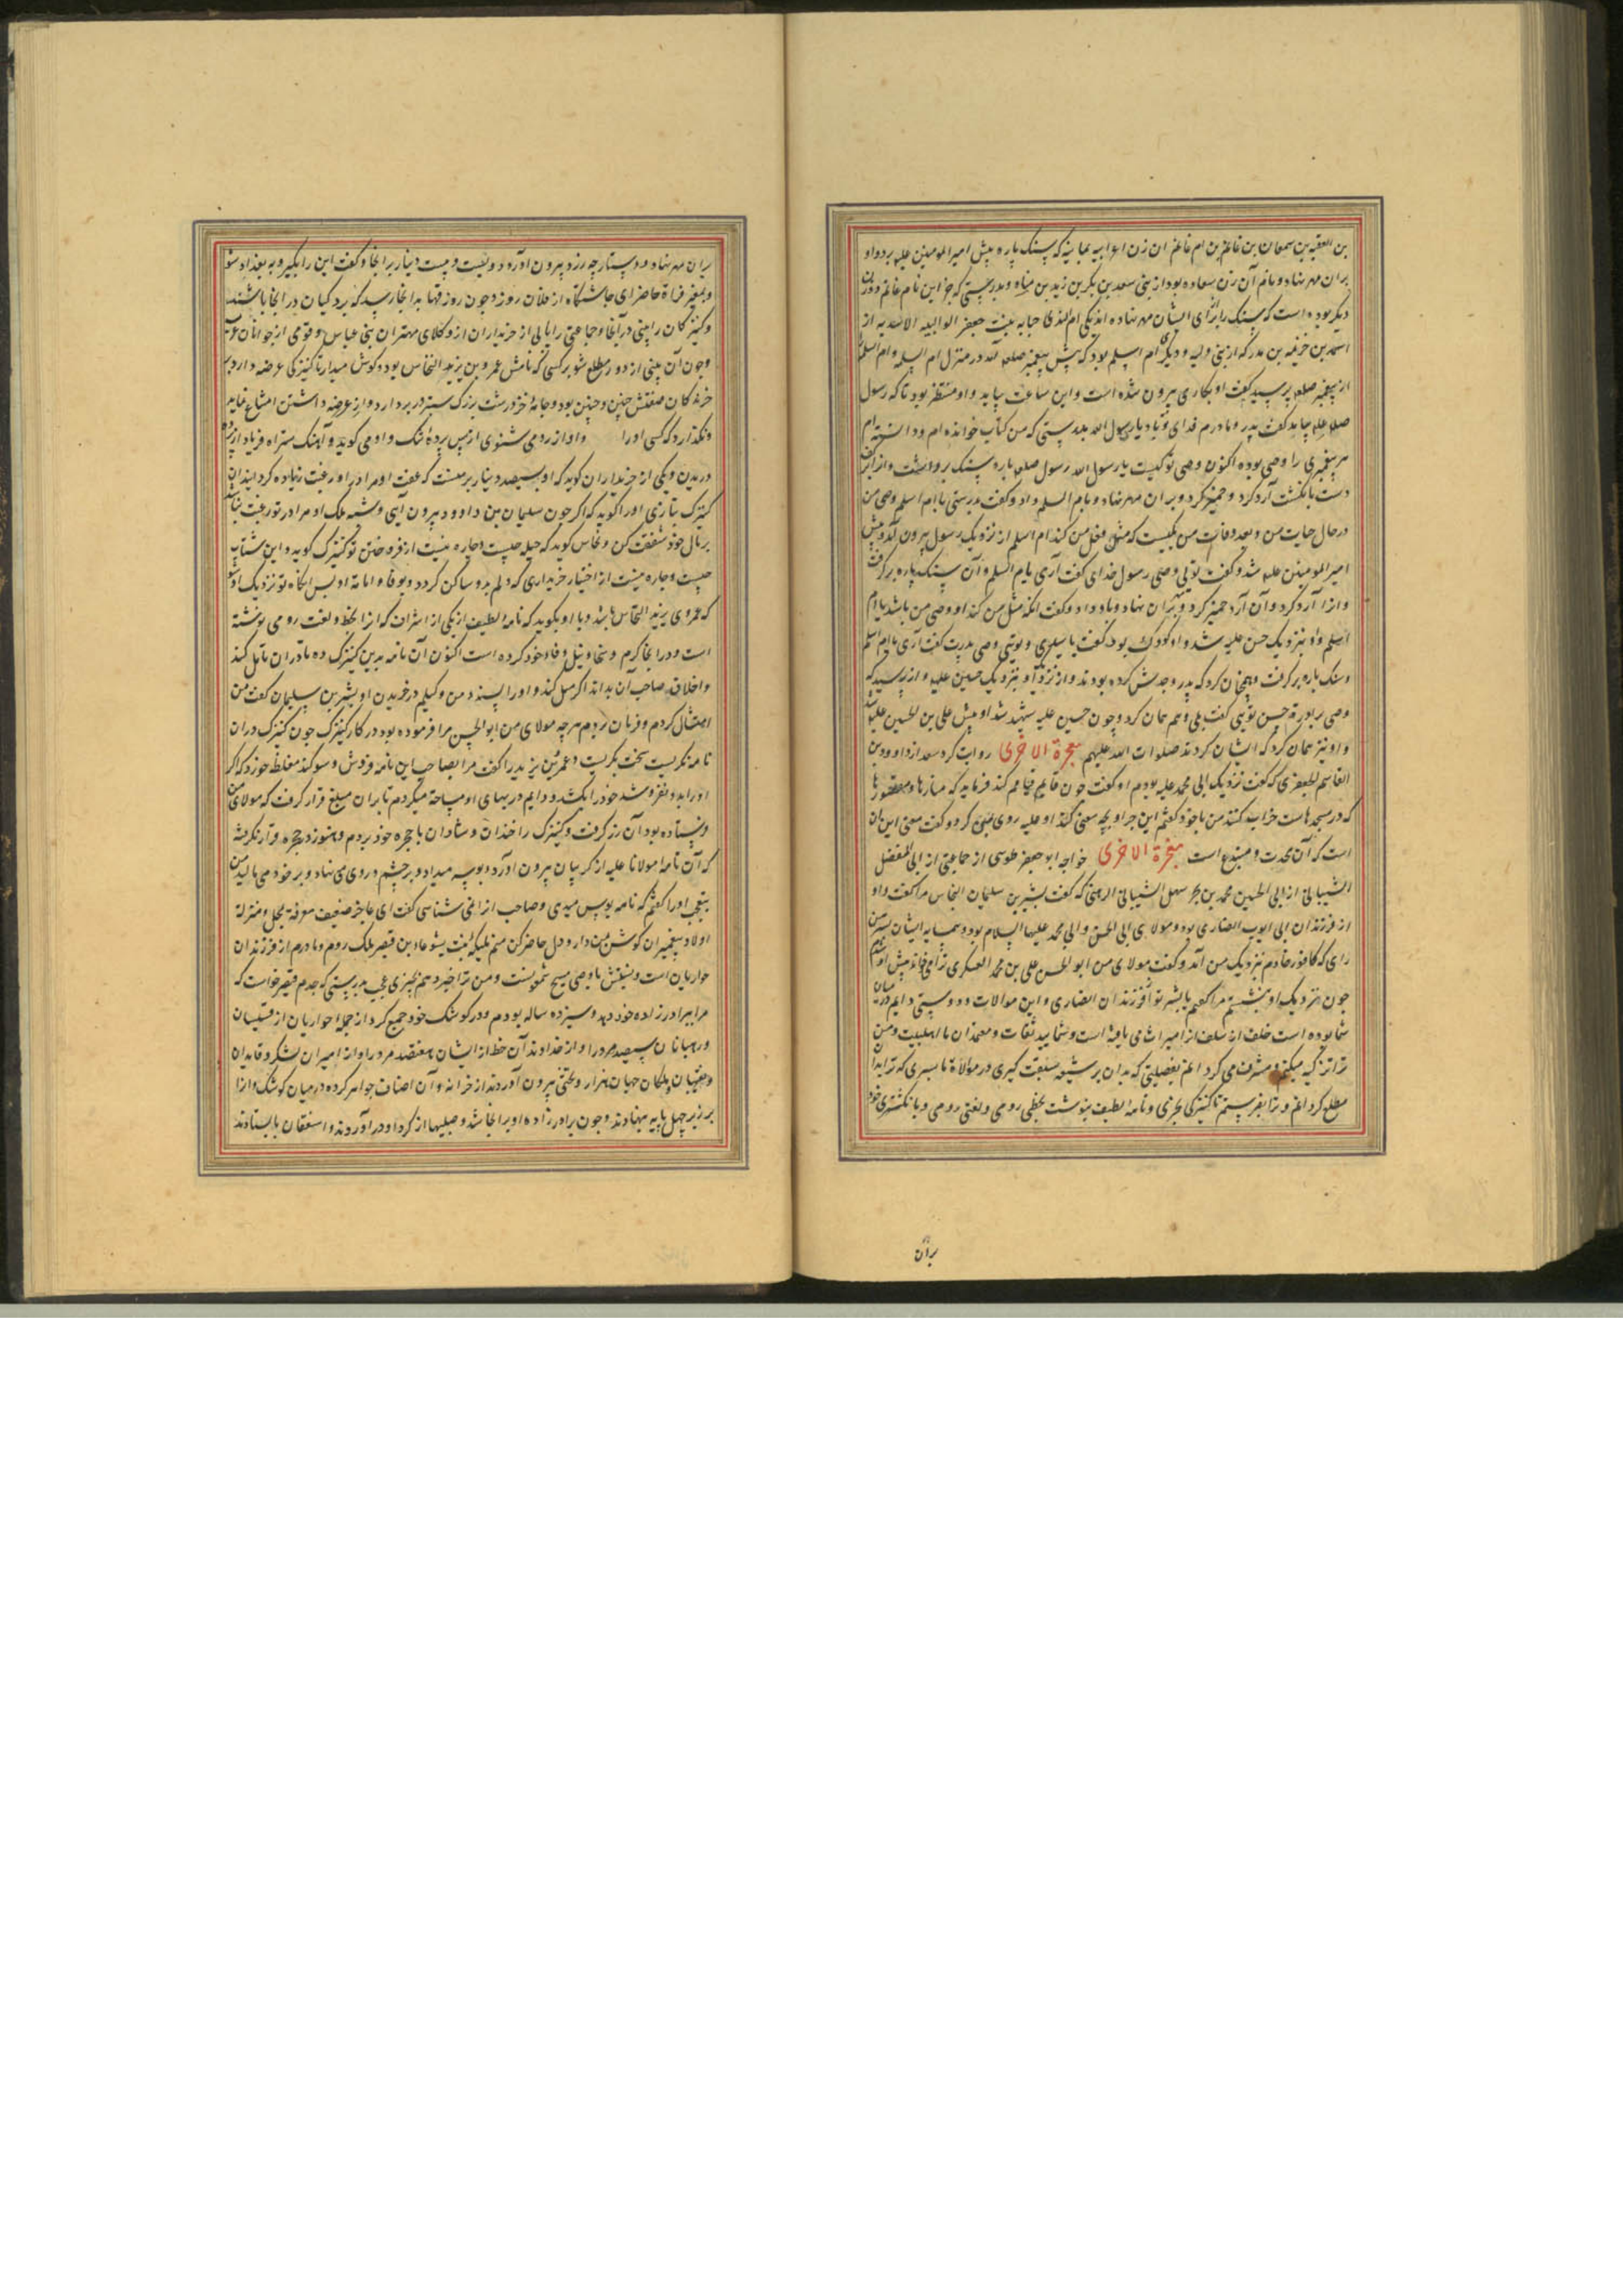 بن العقبه بن سمعان بن غانم بن ام غانم ان زن اعرابیه یمانیه که سنک پاره پیش امیر المومنین علیه برد و او
بران مهر نهاد و نام آن زن سعاده بود از بنی سعد بن بکر بن زید بن مناه و بدرستی که جز این نام غانم دو زن
دیکر بوده است که سنک را برای ایشان مهر نهاده اند یکی ام الندی حبابه بنت جعفر الوالبیه الاسدیه از
اسد بن خزیمه بن مدرکه از بنی والبه و دیکری ام اسلم بود که پیش پیغمبر صلعم آمد در منزل ام سلمه و ام اسلم
از پیغمبر صلعم پرسید کفت او بکاری بیرون شده است و این ساعت بیاید و او منتظر بود تا که رسول
صلعم بیامد کفت پدر و مادرم فدای تو باد یا رسول الله بدرستی که من کتاب خوانده ام و دانسته ام
هر پیغمبری را وصی بوده اکنون وصی تو کیست یا رسول الله رسول صلعم پاره سنک برداشت و از آن
دست بانکشت آرد کرد و خمیر کرد و بران مهر نهاد و بام اسلم داد و کفت بدرستی یا ام اسلم وصی من
در حال حیات من و بعد وفات من یکیست که مثل فعل من کند ام اسلم از نزدیک رسول بیرون آمد و پیش
امیر المومنین علیه شد و کفت تویی وصی رسول خدای کفت آری یا ام اسلم و آن سنک پاره بر کرفت
و از آرد کرد و آن آرد خمیر کرد و بران نهاد و باو داد و کفت آنکه مثل من کند او وصی من باشد یا ام
اسلم و او بنزدیک حسن علیه شد و او کودک بود کفت یا سیدی و تویی وصی پدرت کفت آری یا ام اسلم
و سنک پاره بر کرفت و همچنان کرد که پدر و جدش کرده بودند و از نزد او بنزدیک حسین علیه و از پرسید که
وصی برادرت حسن تویی کفت بلی و هم همان کرد و چون حسین علیه شهید شد او پیش علی بن الحسین علیه شد
و او نیز همان کرد که ایشان کردند صلوات الله علیهم معجزة الاخری روایت کرد سعد از داوود بن
القاسم الجعفری که کفت نزدیک ابی محمد علیه بودم او کفت چون قایم قیام کند فرماید که منارها و مقصورها
که در مسجدهاست خراب کنند من با خود کفتم این چرا و بچه معنی کند او علیه روی بمن کرد و کفت معنی این آن
است که آن محدث و مبتدع است معجزة الاخری خواجه ابو جعفر طوسی از جماعتی از ابی المفضل
الشیبانی از ابی الحسین محمد بن بحر سهل الشیبانی الرهنی که کفت بشر بن سلیمان النخاس مرا کفت و او
از فرزندان ابی ایوب انصاری بود و مولای ابی الحسن و ابی محمد علیهما السلام بود و همسایه ایشان بسر من
رای که کافور خادم بنزدیک من آمد و کفت مولای من ابو الحسن علی بن محمد العسکری ترا می خواند پیش او شدم
چون نزدیک او بنشستم مرا کفت یا بشر تو از فرزندان انصاری و این موالات و دوستی دایم در میان
شما بوده است خلف از سلف از میراث می یافته است و شمایید ثقات و معتمدان ما اهل بیت و من
ترا تزکیه میکنم و مشرف می کردانم بفضیلتی که بدان بر شیعه سبقت کیری در موالات ما بسری که ترا بدان
مطلع کردانم و ترا بفرستم تا کنیزکی بخری و نامه لطیف بنوشت بخطی رومی و لغتی رومی و بانکشتری خود
بران
بران مهر نهاد و دستارچه زرد بیرون آورد دویست و بیست دینار برآنجا و کفت این را بکیر و به بغداد شو
و بمعبر فرات حاضر آی چاشتکاه از فلان روز و چون روز قتها بدانجا رسید که بردکیان در آنجا باشند
و کنیزکان را بینی در آنجا و جماعتی را یابی از خریداران از وکلای مهتران بنی عباس و قومی از جوانان عرب
و چون آن بینی از دور مطلع شو بر کسی که نامش عمرو بن یزید النخاس بود و کوش میدار تا کنیزکی عرضه دارد بر
خرندکان صفتش چنین و چنین بود و جامهٔ خز درشت بزرک ستبر در بر دارد و از عرضه داشتن امتناع نماید
و نکذارد که کسی او را واواز رومی شنوی از پس پردهٔ تنک و او می کوید وا هتک ستراه فریاد از پرده
دریدن و یکی از خریداران کوید که او بسیصد دینار بر منست که عفت او مرا در او رغبت زیاده کردانید آن
کنیزک بتازی او را کوید که اکر چون سلیمان بن داوود بیرون آیی و شبه ملک او مرا در تو رغبت نباشد
بر مال خود شفقت کن و نخاس کوید که حیله چیست و چاره نیست از فروختن تو کنیزک کوید و این شتاب
چیست و چاره نیست از اختیار خریداری که دلم بدو ساکن کردد و بوفا و امانة او پس آنکاه تو نزدیک او شو
که عمرو بن یزید النخاس باشد و با او بکوید که نامه لطیف از یکی از اشراف که از بخط و لغت رومی نوشته
است و در آنجا کرم و سخا و نبل و وفاء خود کرده است اکنون آن نامه بدین کنیزک ده تا در آن تامل کند
و اخلاق صاحب آن بداند اکر میل کند و او را پسندد من وکیلم در خریدن او بشر بن سلیمان کفت من
امتثال کردم و فرمان بردم هرچه مولای من ابو الحسن مرا فرموده بود در کار کنیزک چون کنیزک در آن
نامه نکریست سخت بکریست و عمرو بن یزید را کفت مرا بصاحب این نامه فروش و سوکند مغلظ خورد که اکر
او را بدو نفروشد خود را بکشد و دایم در بهای او مساحة میکردم تا بران مبلغ قرار کرفت که مولای من
فرستاده بود آن زر کرفت و کنیزک را خندان و شادان با حجره خود بردم و هنوز در حجره قرار نکرفته
که آن نامه مولانا علیه از کریبان بیرون آورد و بوسه میداد و بر چشم و روی می نهاد و بر خود می مالید من
بتعجب او را کفتم که نامه بوس میدی و صاحب از انمی شناسی کفت ای عاجز ضعیف معرفة بمحل و منزلة
اولاد پیغمبران کوش بمن دار و دل حاضر کن منم ملیکه بنت یشوعا بن قیصر ملک روم و مادرم از فرزندان
حواریان است و نسبتش با وصی مسیح شمعونست و من ترا خبر دهم بچیزی عجب بدرستی که جدم قیصر خواست که
مرا ببرادرزاده خود دهد و سیزده ساله بودم و در کوشک خود جمع کرد از جمله حواریان از قسیسان
و رهبانان سیصد مرد را و از خداوند آن خط از ایشان هفتصد مرد را و از امیران لشکر و قایدان
و نقیبان و ملکان جهان هزار و تختی بیرون آوردند از خزانه و آن اصناف جواهر کرده در میان کوشک و از
بر زبر چهل پایه بنهادند و چون برادرزاده او بر آنجا شد و صلیبها از کرد او در آوردند و اسقفان بایستادند